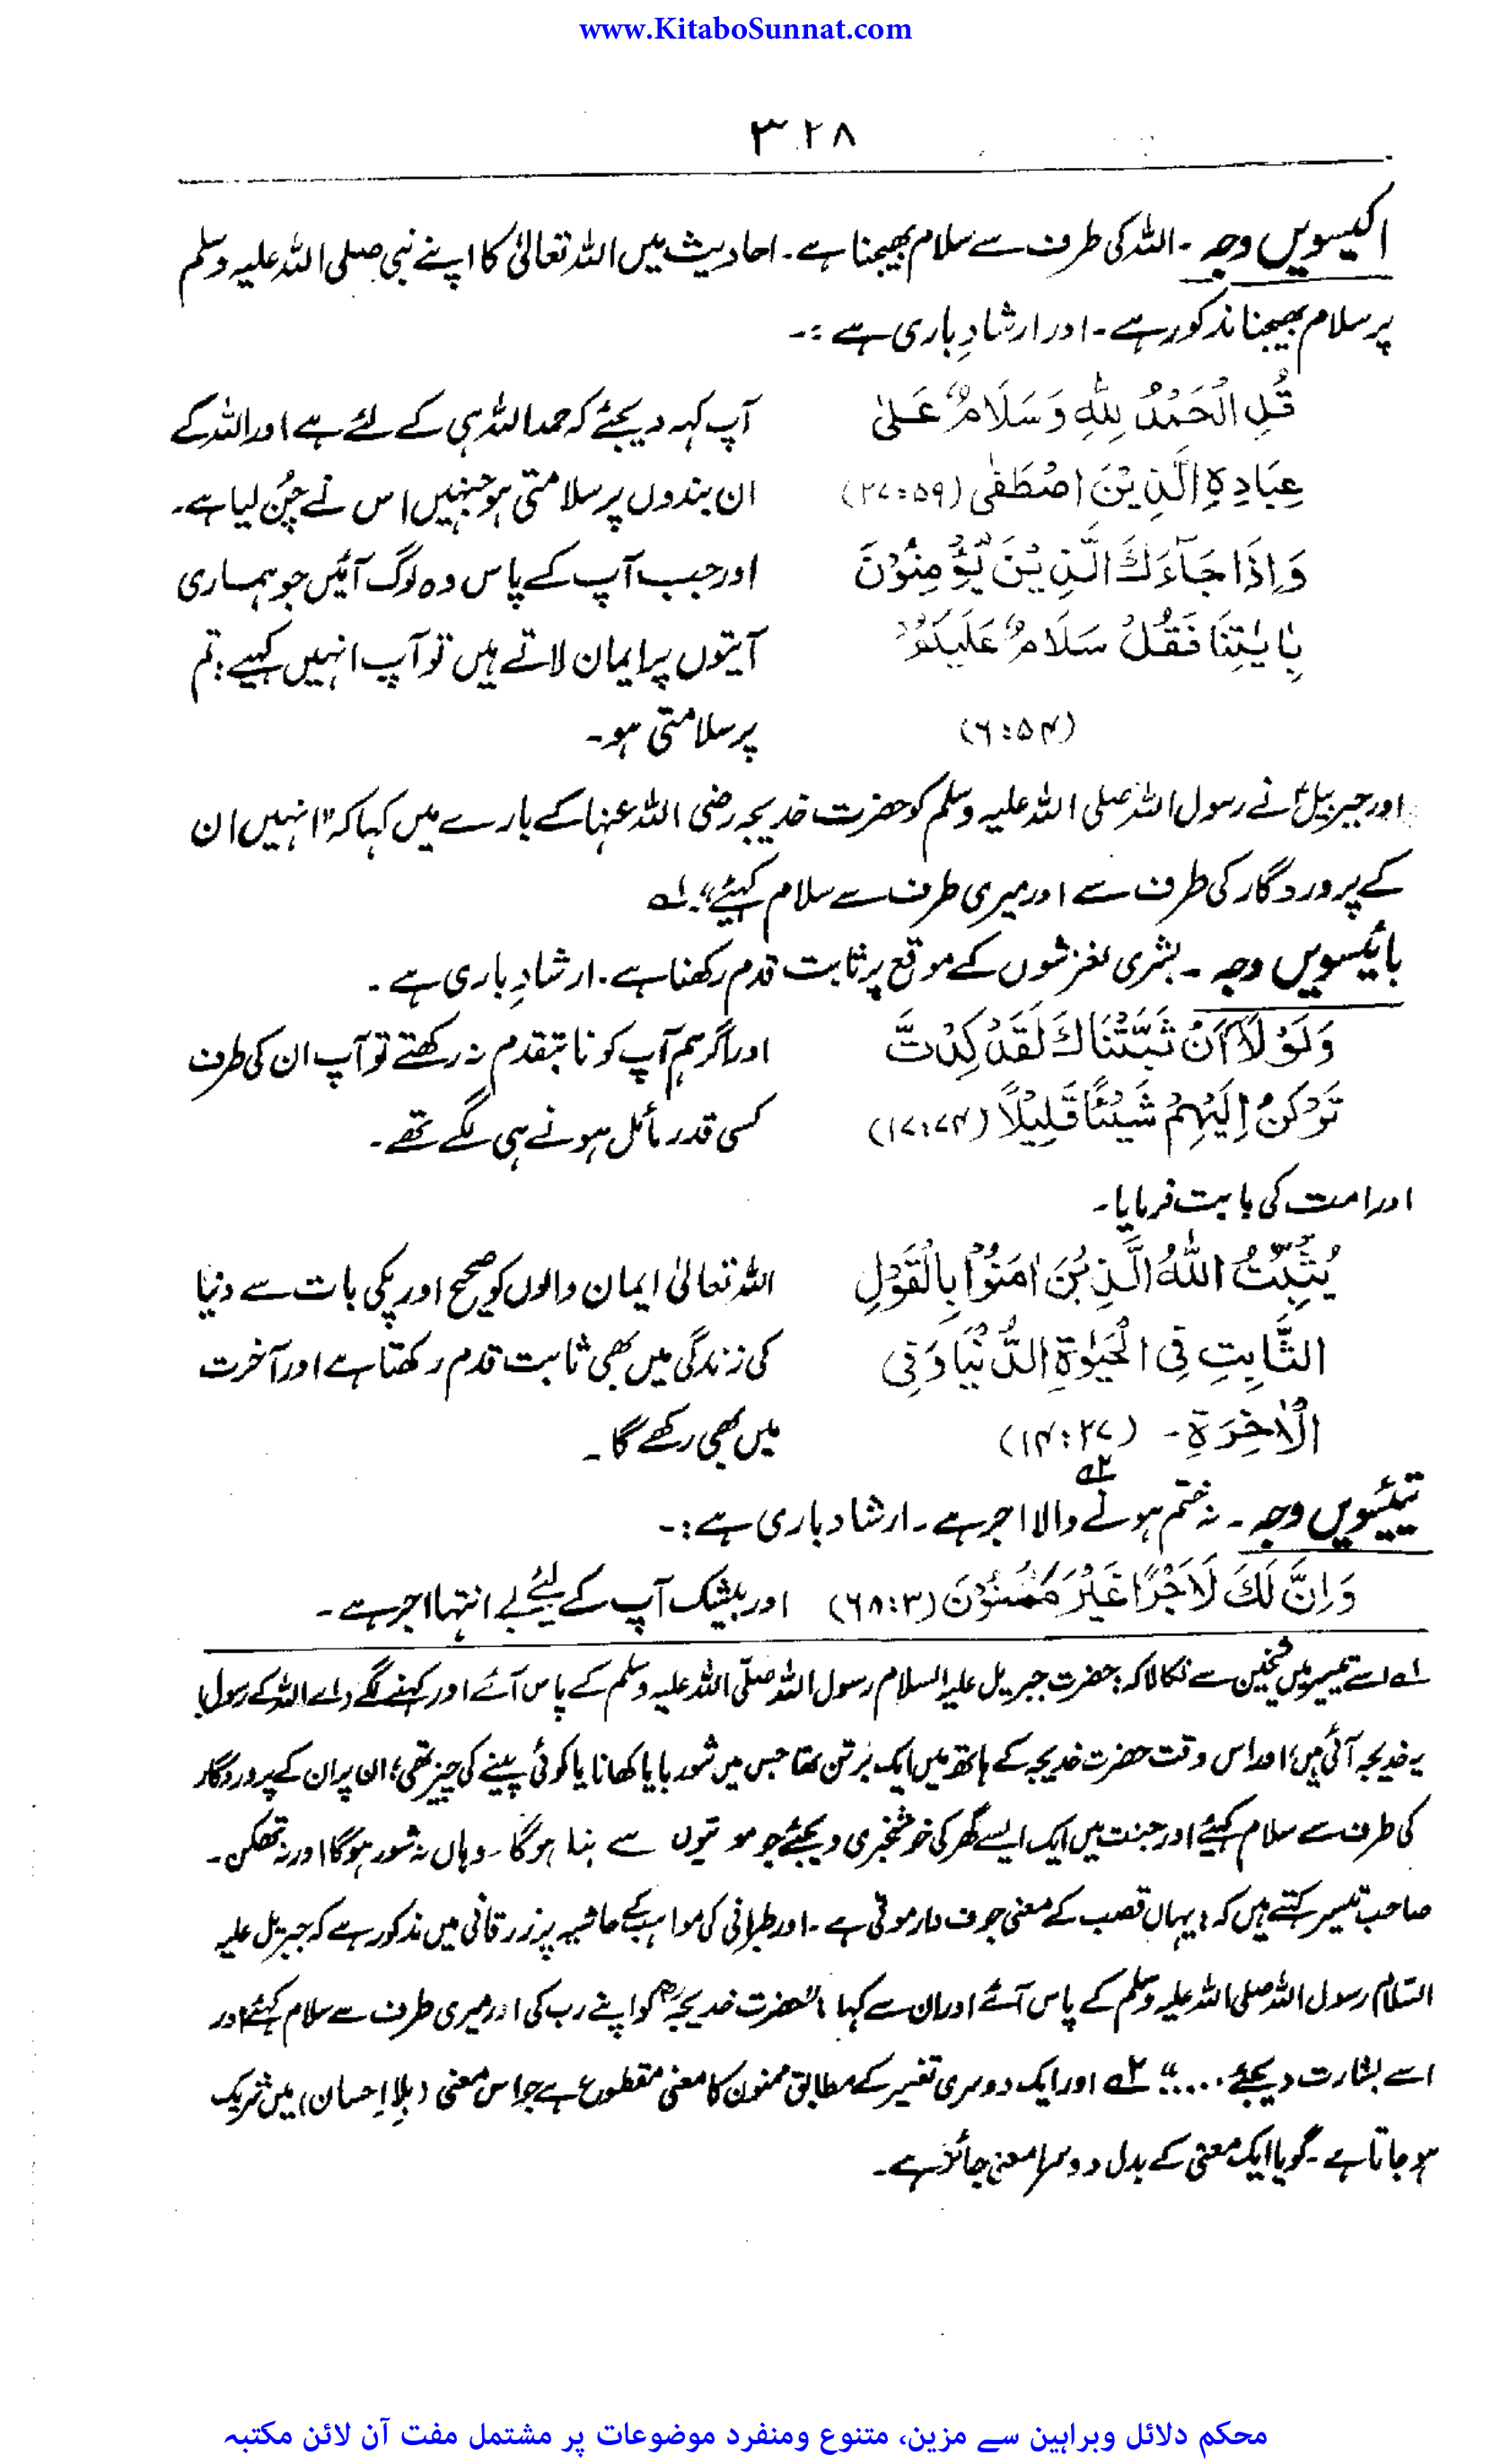 www.KitaboSunnat.com
۳۲۸
اکیسویں وجہ ۔ اللہ کی طرف سے سلام بھیجنا ہے۔ احادیث میں اللہ تعالیٰ کا اپنے نبی صلی اللہ علیہ وسلم
پر سلام بھیجنا مذکور ہے۔ اور ارشادِ باری ہے :۔
قُلِ الْحَمْدُ لِلّٰهِ وَسَلَامٌ عَلٰى
آپ کہہ دیجئے کہ حمد اللہ ہی کے لئے ہے اور اللہ کے
عِبَادِهِ الَّذِيْنَ اصْطَفٰى (۲۷:۵۹)
ان بندوں پر سلامتی ہو جنہیں اس نے چُن لیا ہے۔
وَاِذَا جَآءَكَ الَّذِيْنَ يُؤْمِنُوْنَ
اور جب آپ کے پاس وہ لوگ آئیں جو ہماری
بِاٰيٰتِنَا فَقُلْ سَلَامٌ عَلَيْكُمْ
آیتوں پر ایمان لاتے ہیں تو آپ انہیں کہیے : تم
(۶:۵۴)
پر سلامتی ہو۔
اور جبریلؑ نے رسول اللہ صلی اللہ علیہ وسلم کو حضرت خدیجہ رضی اللہ عنہا کے بارے میں کہا کہ "انہیں ان
کے پروردگار کی طرف سے اور میری طرف سے سلام کہیئے"۔ ۱ے
بائیسویں وجہ ۔ بشری لغزشوں کے موقع پر ثابت قدم رکھنا ہے۔ ارشادِ باری ہے ۔
وَلَوْلَآ اَنْ ثَبَّتْنَاكَ لَقَدْ كِدْتَّ
اور اگر ہم آپ کو ثابتقدم نہ رکھتے تو آپ ان کی طرف
تَرْكَنُ اِلَيْهِمْ شَيْئًا قَلِيْلًا (۱۷:۷۴)
کسی قدر مائل ہونے ہی لگے تھے ۔
اور امت کی بابت فرمایا۔
يُثَبِّتُ اللّٰهُ الَّذِيْنَ اٰمَنُوْا بِالْقَوْلِ
اللہ تعالیٰ ایمان والوں کو صحیح اور پکی بات سے دنیا
الثَّابِتِ فِي الْحَيٰوةِ الدُّنْيَا وَفِي
کی زندگی میں بھی ثابت قدم رکھتا ہے اور آخرت
الْاٰخِرَةِ ۔ (۱۴:۲۷)
میں بھی رکھے گا ۔
تیئسویں وجہ ۔ نہ ختم ہونے ۲ے والا اجر ہے ۔ ارشاد باری ہے :۔
وَاِنَّ لَكَ لَاَجْرًا غَيْرَ مَمْنُوْنَ (۶۸:۳) اور بیشک آپ کے لیئے بے انتہا اجر ہے ۔
۱ے اسے تیسیر میں شیخین سے نکالا کہ : حضرت جبریل علیہ السلام رسول اللہ صلّی اللہ علیہ وسلم کے پاس آئے اور کہنے لگے (اے اللہ کے رسول!
یہ خدیجہ آئی ہیں؛ اور اس وقت حضرت خدیجہ کے ہاتھ میں ایک برتن تھا جس میں شوربا یا کھانا یا کوئی پینے کی چیز تھی؛ ان پر ان کے پروردگار
کی طرف سے سلام کہیئے اور جنت میں ایک ایسے گھر کی خوشخبری دیجئے جو موتیوں سے بنا ہوگا ۔ وہاں نہ شور ہوگا اور نہ تھکن ۔
صاحب تیسیر کہتے ہیں کہ : یہاں قصب کے معنی جوف دار موتی ہے ۔ اور طبرانی کی مواہب کے حاشیہ پر زرقانی میں مذکور ہے کہ جبریل علیہ
السّلام رسول اللہ صلی اللہ علیہ وسلم کے پاس آئے اور ان سے کہا : "حضرت خدیجہؓ کو اپنے رب کی اور میری طرف سے سلام کہئے اور
اسے بشارت دیجئے ....." ۲ے اور ایک دوسری تفسیر کے مطابق ممنون کا معنی مقطوع ہے جو اس معنی (بِلا اِحسان) میں شریک
ہو جاتا ہے ۔ گویا ایک معنی کے بدل دوسرا معنی جائز ہے ۔
محکم دلائل وبراہین سے مزین، متنوع ومنفرد موضوعات پر مشتمل مفت آن لائن مکتبہ